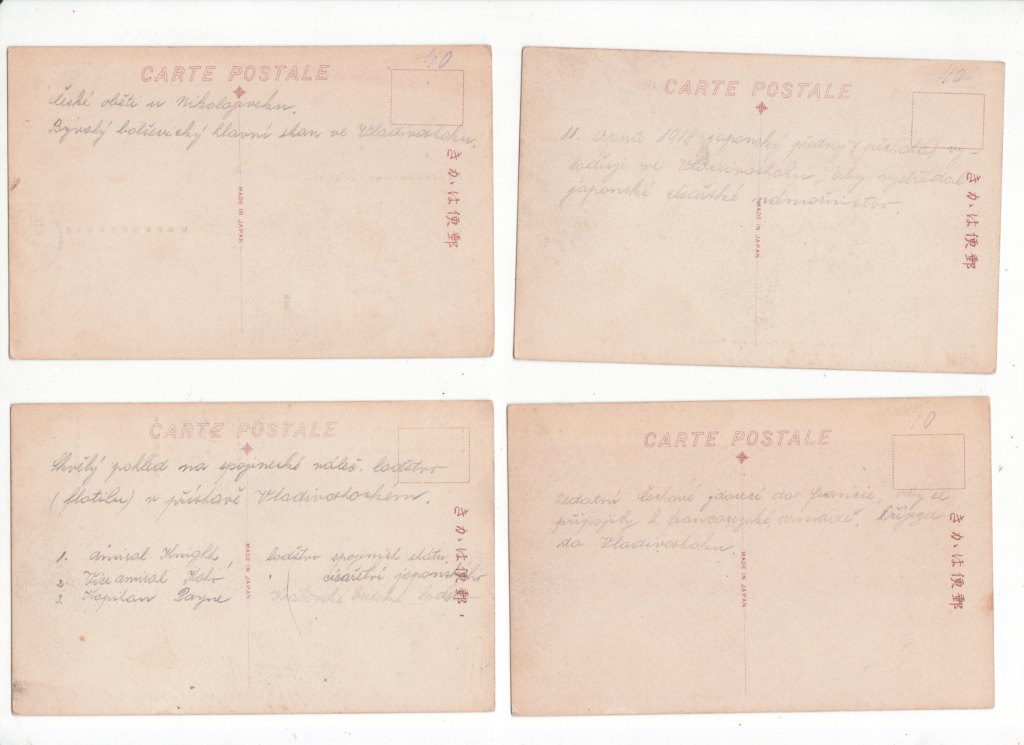 40
CARTE POSTALE
České oběti u Nikolajevsku.
Bývalý bolševický hlavní stan ve Vladivostoku.
MADE IN JAPAN
きかは便郵
40
CARTE POSTALE
11. srpna 1918 japonský
ve Vladivostoku, aby
japonské císařské námořnictvo.
MADE IN JAPAN
きかは便郵
CARTE POSTALE
Skvělý pohled na spojenecké váleč. loďstvo
(flotilu) v přístavě Vladivostockém.
1. Amiral Knight, loďstvo spojených států,
2. Vice amiral Kato, císařství japonského
3. Kapitan Payne Královské britské
MADE IN JAPAN
きかは便郵
10
CARTE POSTALE
Udatní Čechové jdoucí do Francie, aby se
připojili k francouzské armádě.
do Vladivostoku.
MADE IN JAPAN
きかは便郵